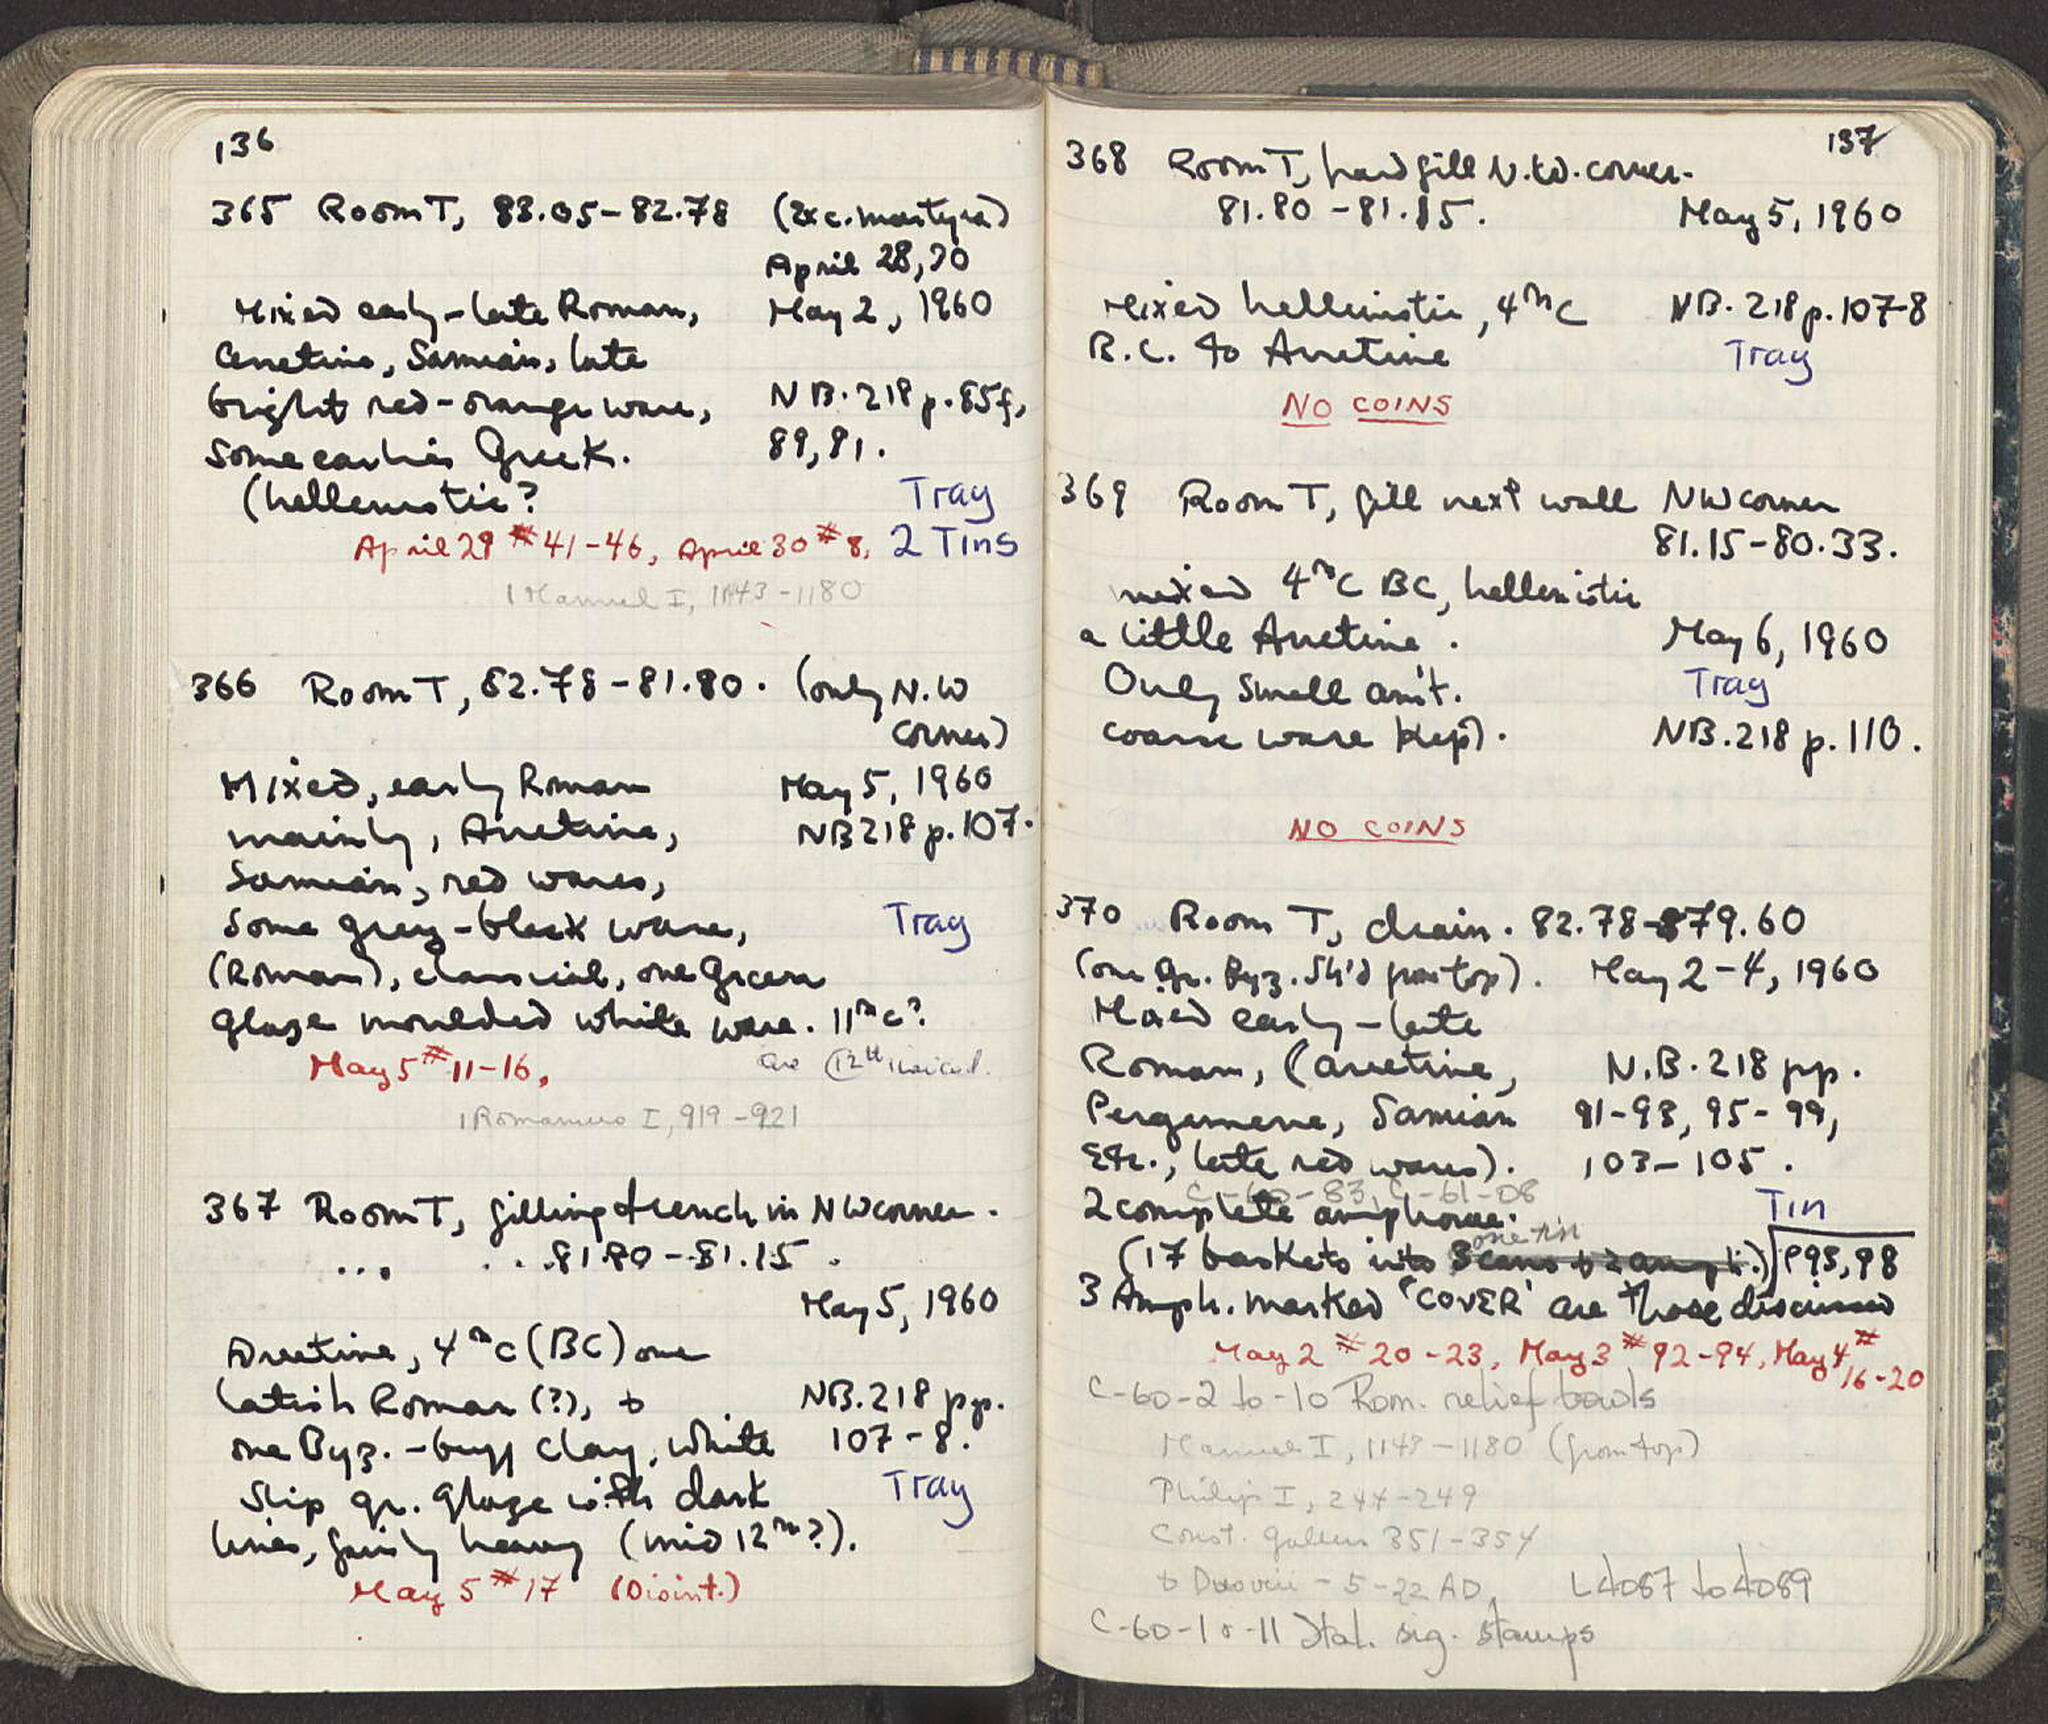 136
365 Room T, 83.05-82.78 (exc. martyra)
April 28, 30
Mixed early-late Roman, May 2, 1960
Arretine, Samian, late
bright red-orange ware, NB. 218 p. 85f,
some earlier Greek. 89, 91.
(hellenistic? Tray
April 29 #41-46, April 30 #8, 2 Tins
1 Manuel I, 1143-1180
366 Room T, 82.78-81.80. (only N.W
corner)
Mixed, early Roman May 5, 1960
mainly, Arretine, NB 218 p. 107.
Samian, red wares,
Some grey-black ware, Tray
(Roman), classical, one green
glaze moulded white ware. 11th c?
May 5 #11-16, 12th
1 Romanus I, 919-921
367 Room T, filling trench in NW corner.
... . . . 81.80-81.15.
May 5, 1960
Arretine, 4th c (BC) one
latish Roman (?), & NB. 218 pp.
one Byz. - buff clay, white 107-8.
slip gr. glaze with dark Tray
lines, fairly heavy (mid 12th?).
May 5 #17 (Disint.)
137
368 Room T, hard fill N.W. corner.
81.80-81.15. May 5, 1960
Mixed hellenistic, 4th c NB. 218 p. 107-8
B.C. to Arretine Tray
NO COINS
369 Room T, fill next wall NW corner
81.15-80.33.
mixed 4th C BC, hellenistic
a little Arretine. May 6, 1960
Only small am't. Tray
coarse ware kept). NB. 218 p. 110.
NO COINS
370 Room T, drain. 82.78-79.60
(one gr. Byz. sh'd from top). May 2-4, 1960
Mixed early-late
Roman, (arretine, N.B. 218 pp.
Pergamene, Samian 91-93, 95-99,
Etc., late red wares). 103-105.
C-60-83, C-61-08
2 complete amphorae. Tin
one tin
(17 baskets into 3 cans & 2 amph.) p 95, 98
3 Amph. marked "COVER" are those discussed
May 2 #20-23, May 3 #92-94, May 4 #16-20
C-60-2 to -10 Rom. relief bowls
Manuel I, 1143-1180 (from top)
Philip I, 244-249
Const. Gallus 351-354
5-22 AD, L4087 to 4089
C-60-1 & -11 Ital. sig. stamps